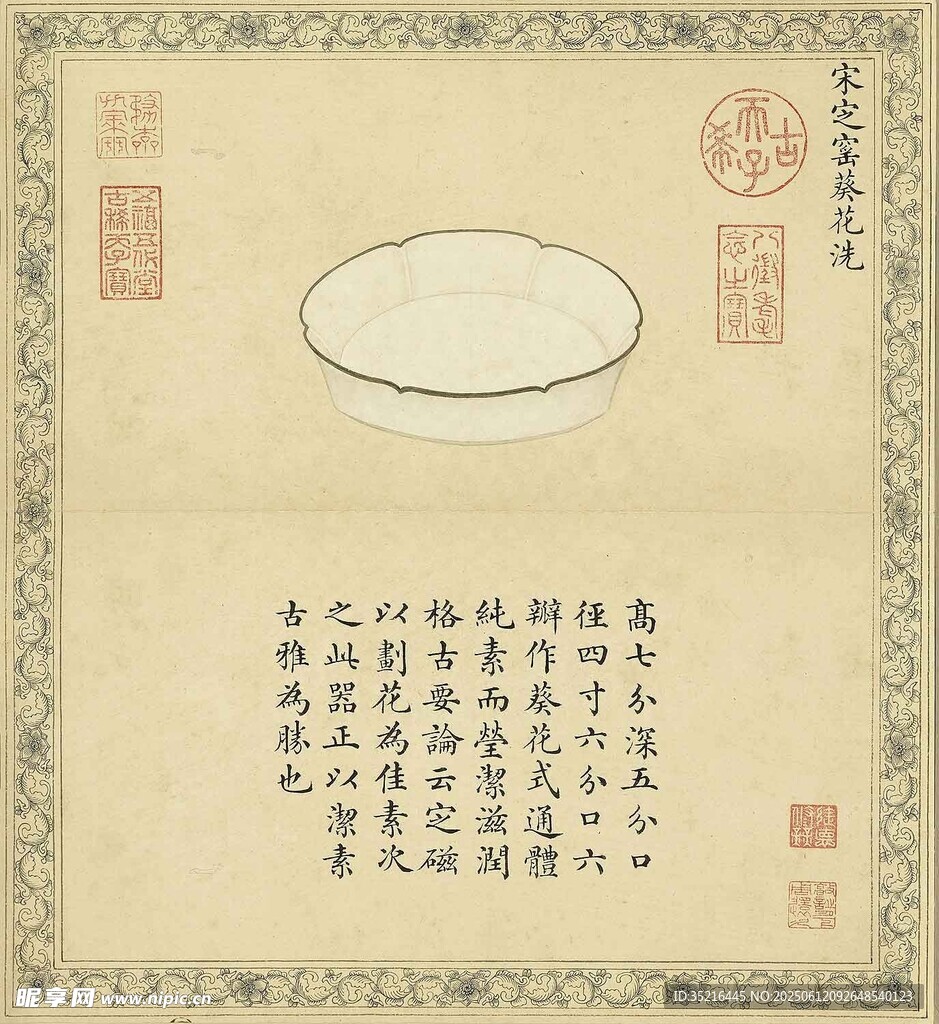 宋定窰葵花洗
古
天子
希
八徵耄
念之寶
五福五代堂
古稀天子寶
高七分深五分口
徑四寸六分口六
瓣作葵花式通體
純素而瑩潔滋潤
格古要論云定磁
以劃花為佳素次
之此器正以潔素
古雅為勝也
昵享网 www.nipic.cn
ID:35216445 NO:20250612092648540123